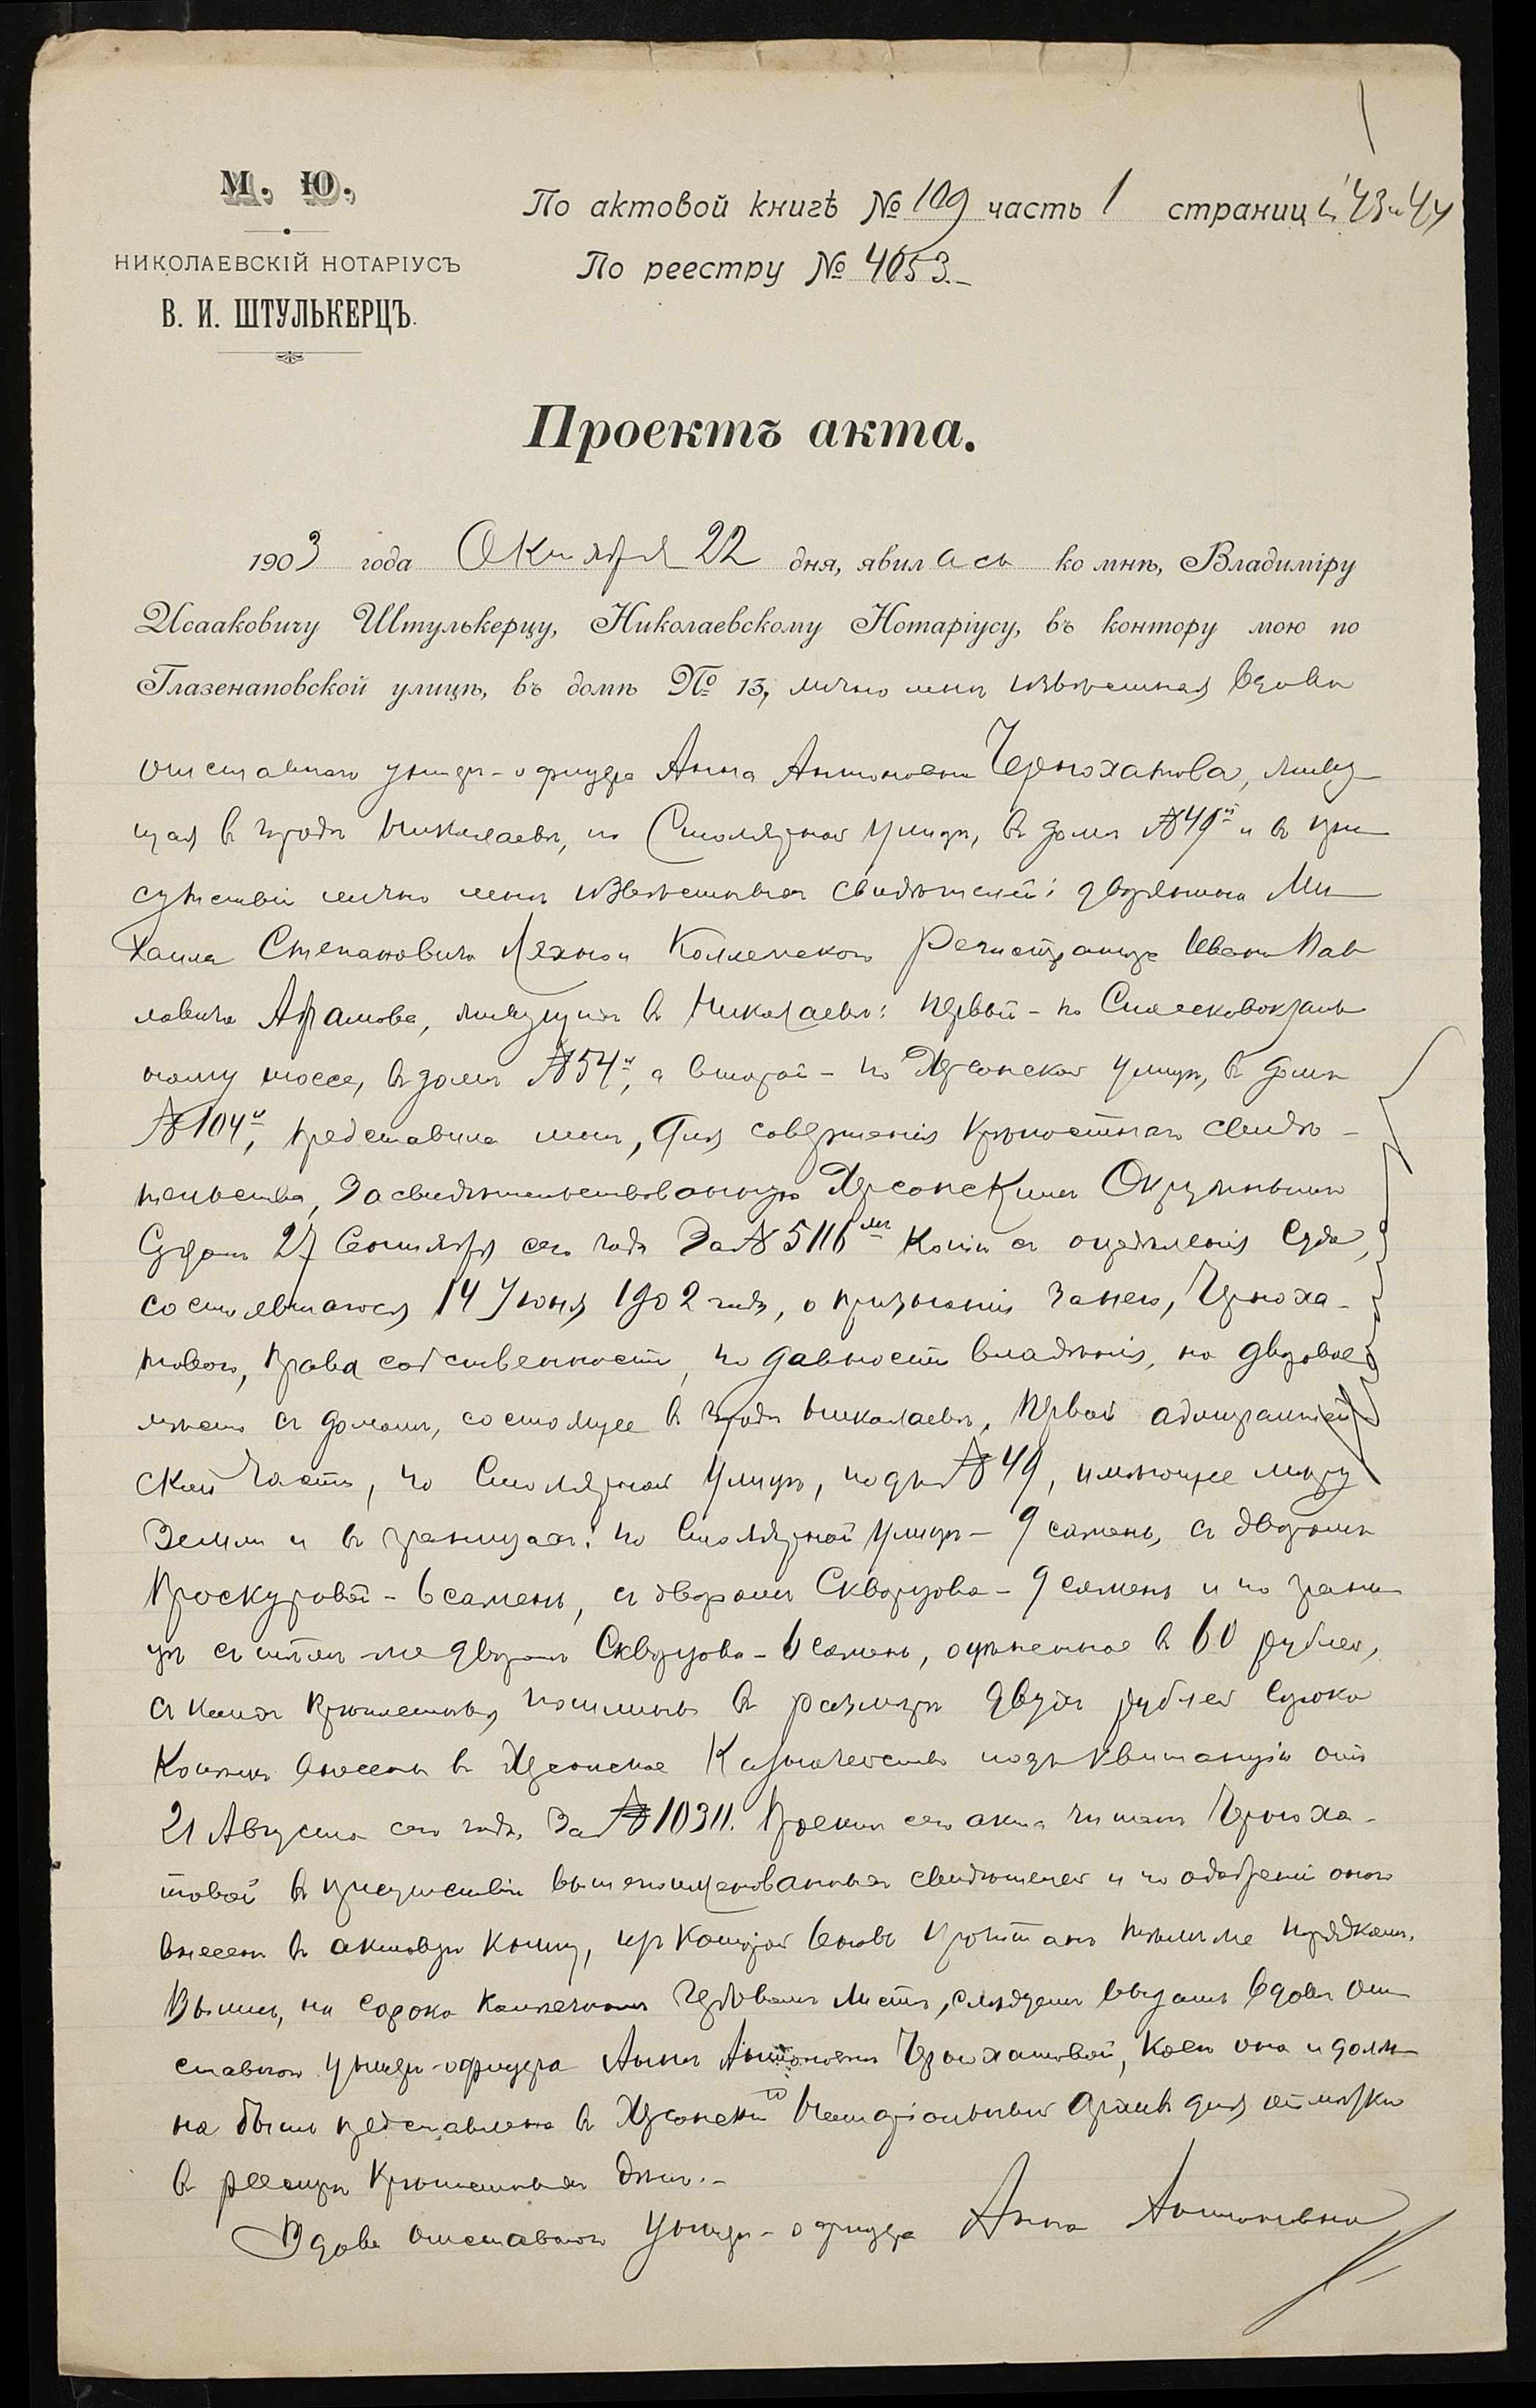 М. Ю.
НИКОЛАЕВСКІЙ НОТАРІУСЪ
В. И. ШТУЛЬКЕРЦЪ.
По актовой книгѣ № 109 часть 1 страниц 43 и 44
По реестру № 4053.-
Проектъ акта.
1903 года Октября 22 дня, явилась ко мнѣ, Владиміру
Исааковичу Штулькерцу, Николаевскому Нотаріусу, въ контору мою по
Глазенаповской улицѣ, въ домѣ № 13, лично мнѣ извѣстная вдова
отставного унтеръ-офицера Анна Антоновна Чернохатова, живу-
щая в городѣ Николаевѣ, по Столярной улицѣ, в домѣ № 49й и в при
сутствіи лично мнѣ извѣстныхъ свидѣтелей: дворянина Ми-
хаила Степановича и Коллежского Регистратора Ивана Пав
ловича Абрамова, живущихъ в Николаевѣ: первый - по
ному шоссе, в домѣ № 54й, а второй - по Херсонской улицѣ, в домѣ
№ 104й, представила мнѣ, для совершенія крѣпостнаго свидѣ-
тельства, засвидѣтельствованную Херсонскимъ Окружнымъ
Судомъ 27 Сентября сего года за № 5116мъ копію съ опредѣленія Суда,
состоявшагося 14 Іюня 1902 года, о признаніи за нею, Черноха-
товою, права собственности, по давности владѣнія, на дворовое
мѣсто съ домомъ, состоящее в городѣ Николаевѣ, первой адмиралтей
ской части, по Столярной улицѣ, подъ № 49, имѣющее мѣру
земли и в границахъ: по Столярной улицѣ - 9 сажень, съ дворомъ
Проскуровой - 6 сажень, съ дворомъ Скворцова - 9 сажень и по грани
цѣ съ тѣмъ-же дворомъ Скворцова - 6 сажень, оцѣненное в 60 рублей,
съ коихъ крѣпостныя пошлины в размѣрѣ двухъ рублей сорока
копѣекъ внесены в Херсонское Казначейство подъ квитанцію отъ
21 Августа сего года за № 10311. Проектъ сего акта читанъ Черноха-
товой в присутствіи вышепоименованныхъ свидѣтелей и по одобреніи оного
внесенъ в актовую книгу, изъ которой вновь прочитанъ тѣмъ же порядкомъ.
Выпись, на сорока копѣечномъ гербовомъ листѣ, слѣдуетъ выдать вдовѣ от
ставного унтеръ-офицера Аннѣ Антоновнѣ Чернохатовой, коею она и долж-
на быть представлена в Херсонскій Нотаріальный Архивъ для отмѣтки
в реестрѣ крѣпостныхъ дѣлъ.-
Вдова отставного унтеръ-офицера Анна Антоновна